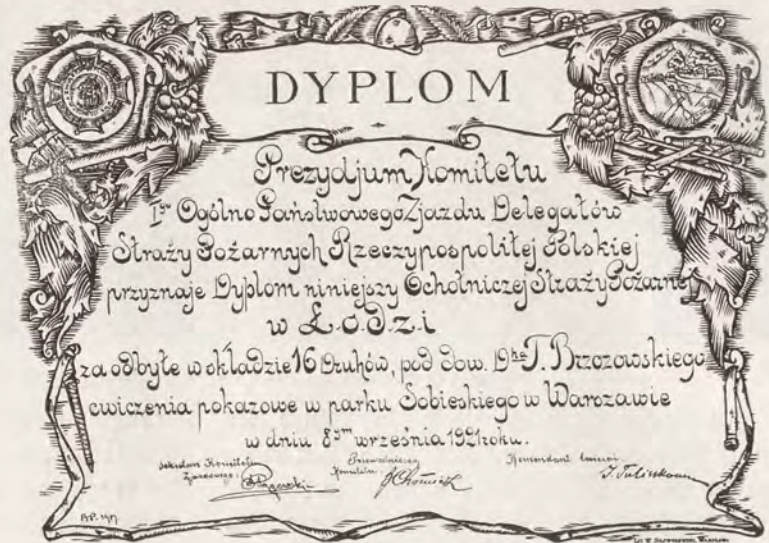 DYPLOM
Prezydjum Komitetu
Igo Ogólno Państwowego Zjazdu Delegatów
Straży Pożarnych Rzeczypospolitej Polskiej
przyznaje Dyplom niniejszy Ochotniczej Straży Pożarnej
w Ł.o.d.z.i
za odbyte w składzie 16 Druhów, pod dow. Dha T. Brzozowskiego
cwiczenia pokazowe w parku Sobieskiego w Warszawie
w dniu 8ym września 1921 roku.
Sekretarz Komitetu Przewodniczący Komendant ćwiczeń
Zjazdowego: Komitetu